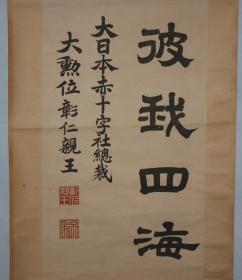 彼我四海
大日本赤十字社總裁
大勲位彰仁親王